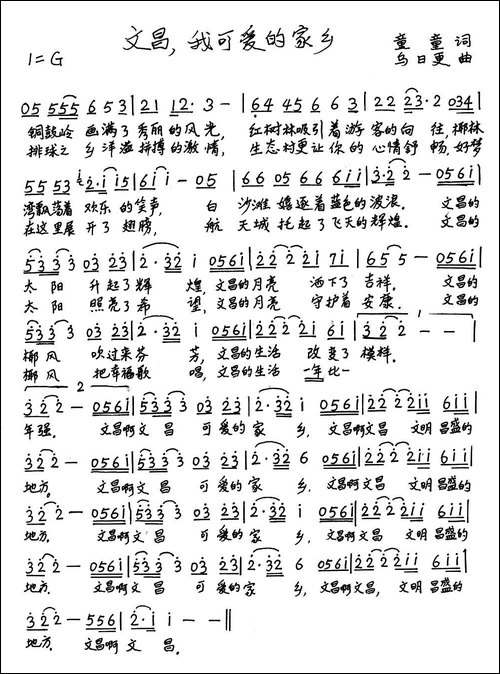 文昌，我可爱的家乡
1=G
童童 词
乌日更 曲
05 555 6 53 | 21 12· 3 - | 64 45 6 63 | 22 23·2 034 |
铜鼓岭 画满了秀丽的风光， 红树林吸引着游客的向往，椰林
排球之乡洋溢拼搏的激情， 生态村更让你的心情舒畅，好梦
55 53 2·i i5 | 6i i - 05 | 66 05 66 6ii | 3·2 2 - 056i |
湾飘荡着欢乐的笑声， 白沙滩嬉逐着蓝色的波浪。 文昌的
在这里展开了翅膀， 航天城托起了飞天的辉煌。 文昌的
533 3 03 23 | 2·32 i 056i | 222 2i 7i | 65 5 - 056i |
太阳 升起了辉煌，文昌的月亮 洒下了吉祥。 文昌的
太阳 照亮了希望，文昌的月亮 守护着安康。 文昌的
533 3 03 23 | 2·32 i 056i | 222 2i 6i | 322 - - |
椰风 吹过来芬芳，文昌的生活 改变了模样。
椰风 把幸福歌唱，文昌的生活 一年比一
322 - 056i | 533 3 03 23 | 2·32 i 056i | 222 2ii 6ii |
年强。 文昌啊文昌 可爱的家乡，文昌啊文昌 文明昌盛的
322 - 056i | 533 3 03 23 | 2·32 6 056i | 222 2ii 6ii |
地方。 文昌啊文昌 可爱的家乡，文昌啊文昌 文明昌盛的
322 - 056i | 533 3 03 23 | 2·32 i 056i | 222 2ii 6ii |
地方。 文昌啊文昌 可爱的家乡，文昌啊文昌 文明昌盛的
322 - 056i | 533 3 03 23 | 2·32 6 056i | 222 2ii 6ii |
地方。 文昌啊文昌 可爱的家乡，文昌啊文昌，文明昌盛的
322 - 556 | 2·i i - - ||
地方。 文昌啊文昌。